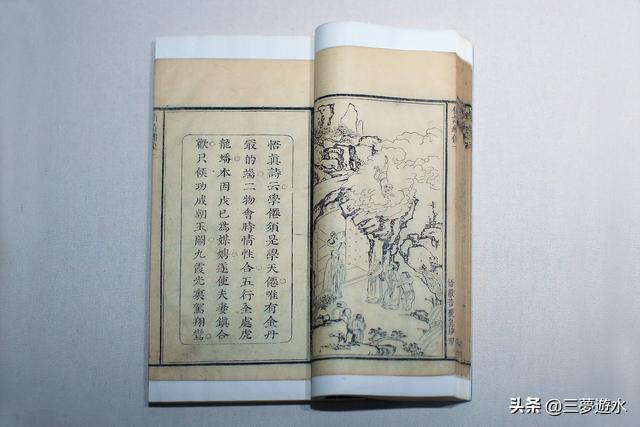 悟眞詩云學僊須是學天僊唯有金丹
㝡的端二物會時情性合五行全處虎
龍蟠本因戊已爲媒娉遂使夫妻鎭合
歡只候功成朝玉闕九霞光裏駕翔鸞
头条 @三夢遊水